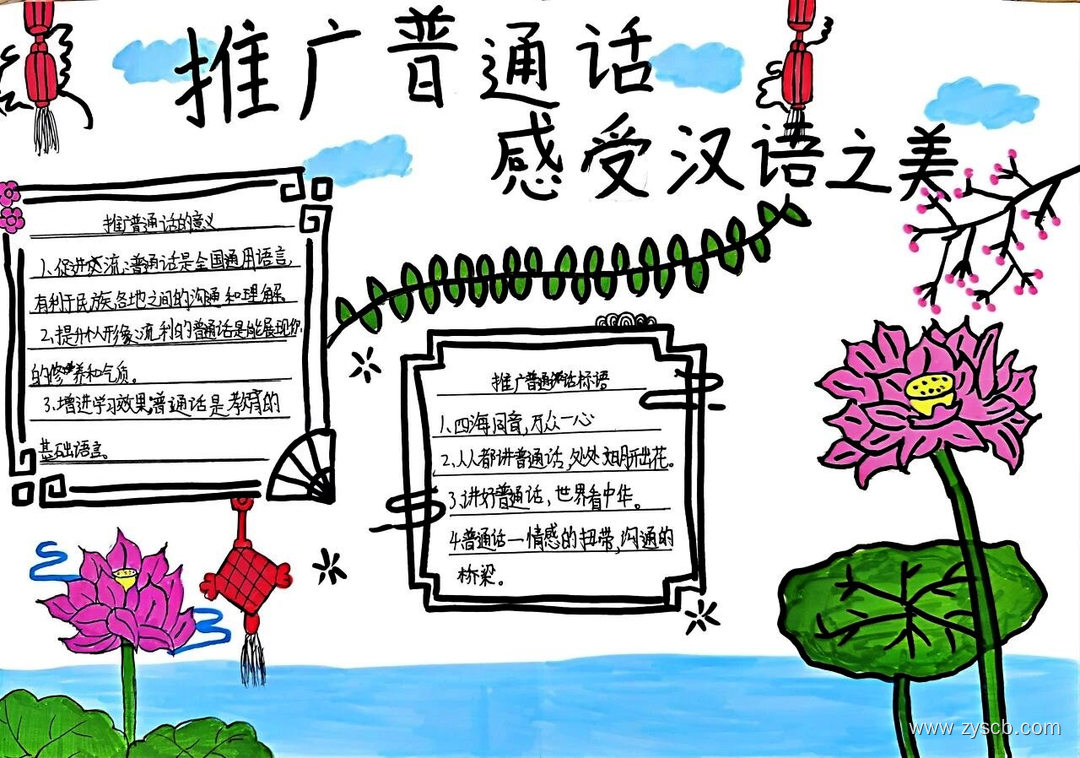 推广普通话
感受汉语之美
推广普通话的意义
1、促进交流:普通话是全国通用语言,
有利于民族各地之间的沟通和理解
2、提升个人形像:流利的普通话是能展现你
的修养和气质。
3、增进学习效果,普通话是教育的
基础语言。
推广普通话标语
1、四海同音,万众一心
2、人人都讲普通话,处处如明开出花。
3、讲好普通话,世界看中华。
4普通话一情感的扭带,沟通的
桥梁。
www.zyscb.com